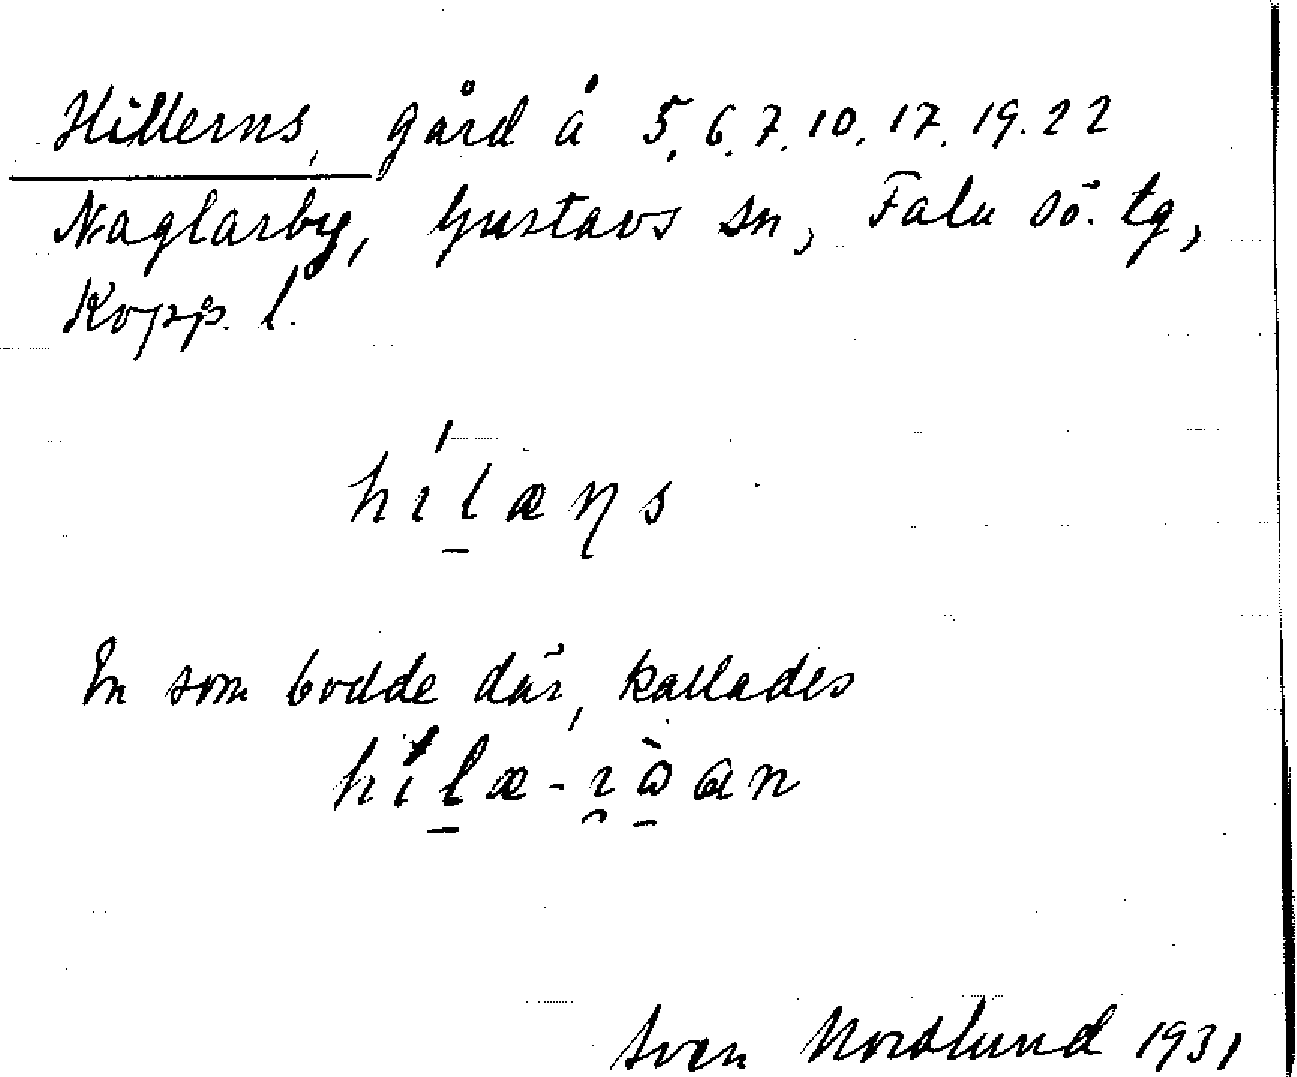 Hillerns, gård å 5. 6. 7. 10. 17. 19. 22
Naglarby, Gustavs sn, Falu sö. tg,
Kopp. l.
hílæŋs
En som bodde där, kallades
Sven Nordlund 1931